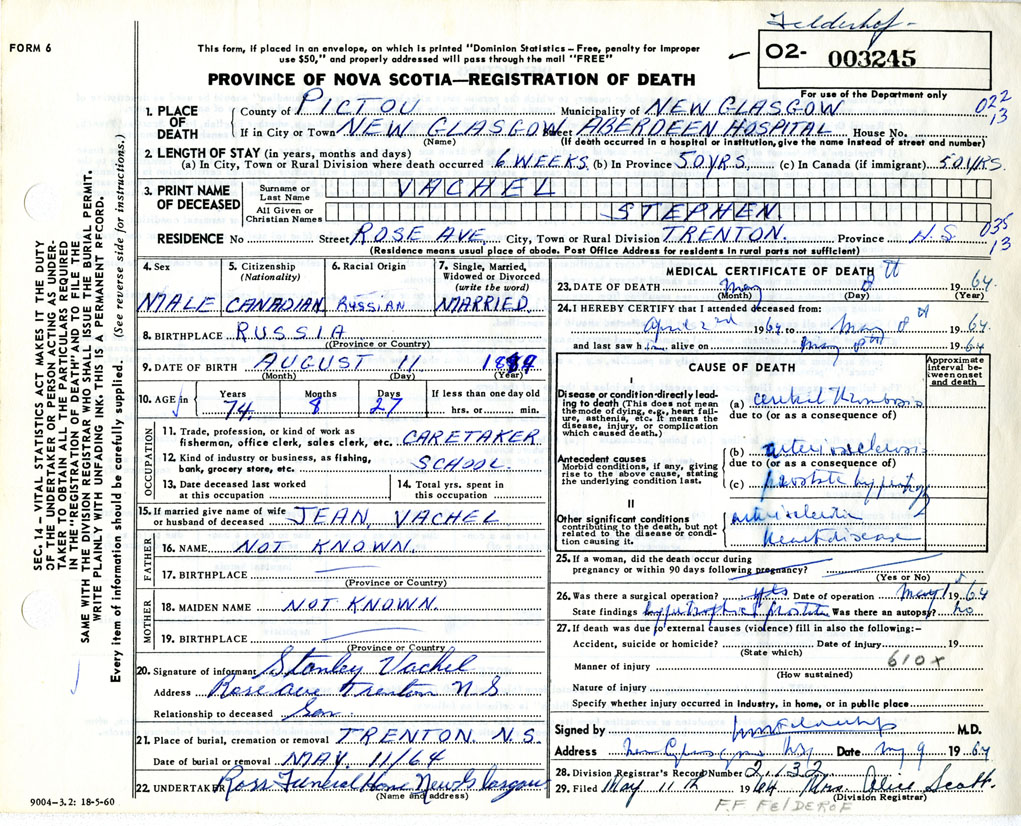 Felderhof-
FORM 6
This form, if placed in an envelope, on which is printed "Dominion Statistics – Free, penalty for improper
use $50," and properly addressed will pass through the mail "FREE"
02- 003245
For use of the Department only
PROVINCE OF NOVA SCOTIA—REGISTRATION OF DEATH
022
13
1. PLACE OF DEATH County of PICTOU Municipality of NEW GLASGOW
If in City or Town NEW GLASGOW Street ABERDEEN HOSPITAL House No.
(Name) (If death occurred in a hospital or institution, give the name instead of street and number)
2. LENGTH OF STAY (in years, months and days)
(a) In City, Town or Rural Division where death occurred 6 WEEKS (b) In Province 50 YRS. (c) In Canada (if immigrant) 50 YRS
3. PRINT NAME OF DECEASED Surname or Last Name VACHEL
All Given or Christian Names STEPHEN.
035
13
RESIDENCE No Street ROSE AVE. City, Town or Rural Division TRENTON. Province N.S
(Residence means usual place of abode. Post Office Address for residents in rural parts not sufficient)
4. Sex MALE
5. Citizenship (Nationality) CANADIAN
6. Racial Origin RUSSIAN
7. Single, Married, Widowed or Divorced (write the word) MARRIED.
8. BIRTHPLACE RUSSIA
(Province or Country)
9. DATE OF BIRTH AUGUST 11
(Month) (Day) (Year)
10. AGE in Years 74 Months 8 Days 27 If less than one day old
hrs. or min.
OCCUPATION
11. Trade, profession, or kind of work as
fisherman, office clerk, sales clerk, etc. CARETAKER
12. Kind of industry or business, as fishing,
bank, grocery store, etc. SCHOOL.
13. Date deceased last worked
at this occupation
14. Total yrs. spent in
this occupation
15. If married give name of wife
or husband of deceased JEAN, VACHEL
FATHER
16. NAME NOT KNOWN.
17. BIRTHPLACE
(Province or Country)
MOTHER
18. MAIDEN NAME NOT KNOWN.
19. BIRTHPLACE
(Province or Country)
20. Signature of informant Stanley Vachel
Address Rose Ave Trenton N S
Relationship to deceased Son
21. Place of burial, cremation or removal TRENTON. N.S.
Date of burial or removal MAY. 11/64
22. UNDERTAKER Ross Funeral Home New Glasgow
(Name and address)
MEDICAL CERTIFICATE OF DEATH
23. DATE OF DEATH May 8 th 19 64.
(Month) (Day) (Year)
24. I HEREBY CERTIFY that I attended deceased from:
April 2nd 1964 to May 8th 1964.
and last saw him alive on May 8th 1964
CAUSE OF DEATH
Approximate interval between onset and death
I
Disease or condition directly leading to death (This does not mean the mode of dying, e.g., heart failure, asthenia, etc. It means the disease, injury, or complication which caused death.)
(a) cerebral thrombosis
due to (or as a consequence of)
Antecedent causes
Morbid conditions, if any, giving rise to the above cause, stating the underlying condition last.
(b) arteriosclerosis
due to (or as a consequence of)
(c) prostate hypertrophy
II
Other significant conditions
contributing to the death, but not related to the disease or condition causing it.
arteriosclerotic
heart disease
25. If a woman, did the death occur during
pregnancy or within 90 days following pregnancy?
(Yes or No)
26. Was there a surgical operation? yes Date of operation May 1 1964
State findings hypertrophied prostate Was there an autopsy? no
27. If death was due to external causes (violence) fill in also the following:–
Accident, suicide or homicide? Date of injury 19
(State which)
610X
Manner of injury
(How sustained)
Nature of injury
Specify whether injury occurred in industry, in home, or in public place
Signed by M.D.
Address New Glasgow NS Date May 9 1964
28. Division Registrar's Record Number 2132
29. Filed May 11th 1964 Mrs. Alice Scott.
(Division Registrar)
F.F FELDEROF
9004–3.2: 18-5-60
SEC. 14 – VITAL STATISTICS ACT MAKES IT THE DUTY
OF THE UNDERTAKER OR PERSON ACTING AS UNDER-
TAKER TO OBTAIN ALL THE PARTICULARS REQUIRED
IN THE "REGISTRATION OF DEATH" AND TO FILE THE
SAME WITH THE DIVISION REGISTRAR WHO SHALL ISSUE THE BURIAL PERMIT.
WRITE PLAINLY WITH UNFADING INK. THIS IS A PERMANENT RECORD.
Every item of information should be carefully supplied. (See reverse side for instructions.)